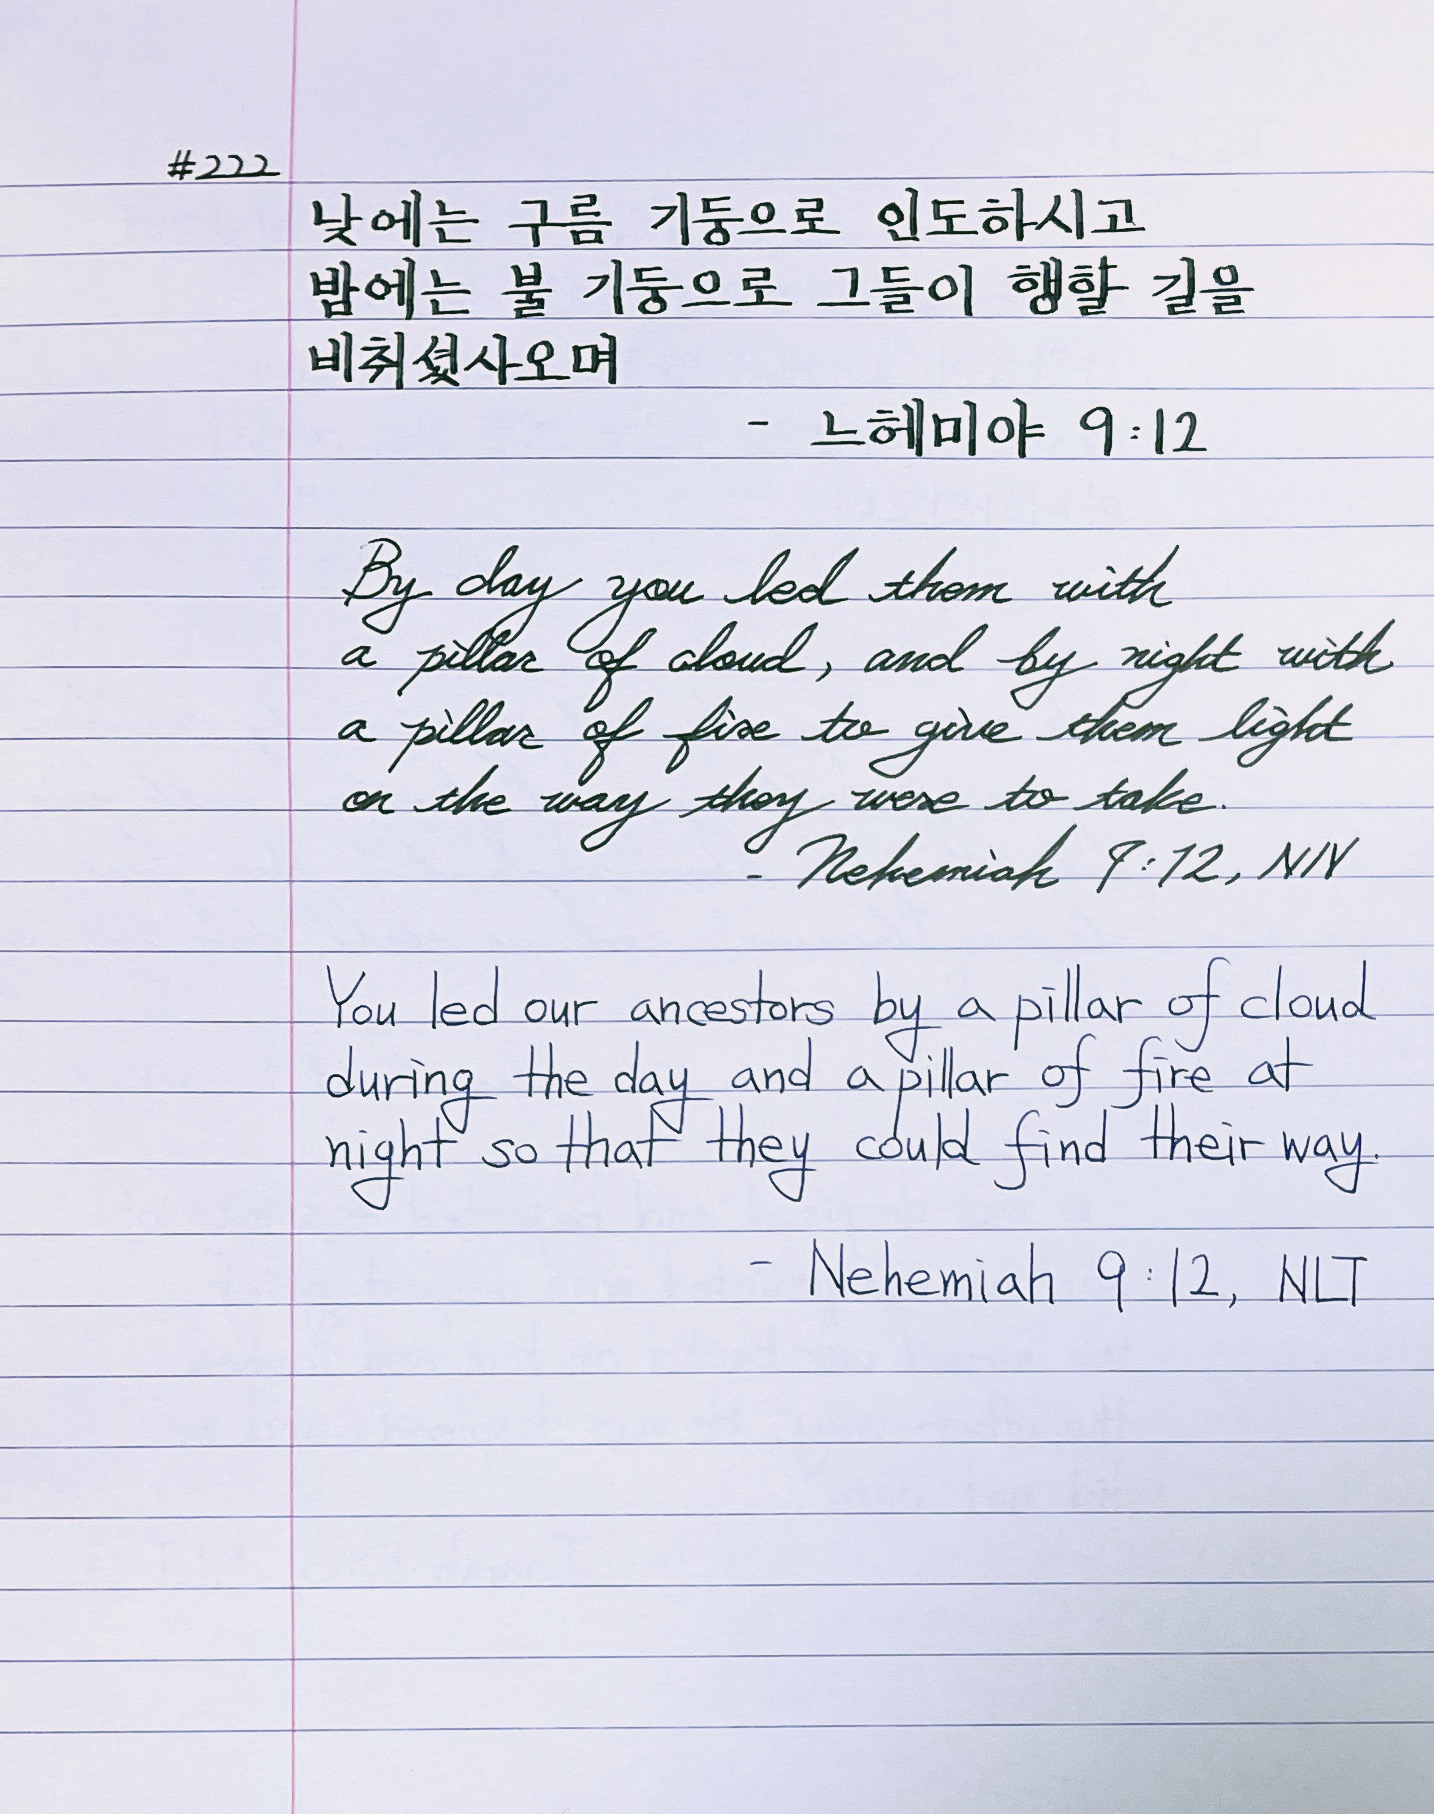 #222
낮에는 구름 기둥으로 인도하시고
밤에는 불 기둥으로 그들이 행할 길을
비취셨사오며
- 느헤미야 9:12
By day you led them with
a pillar of cloud, and by night with
a pillar of fire to give them light
on the way they were to take.
- Nehemiah 9:12, NIV
You led our ancestors by a pillar of cloud
during the day and a pillar of fire at
night so that they could find their way.
- Nehemiah 9:12, NLT